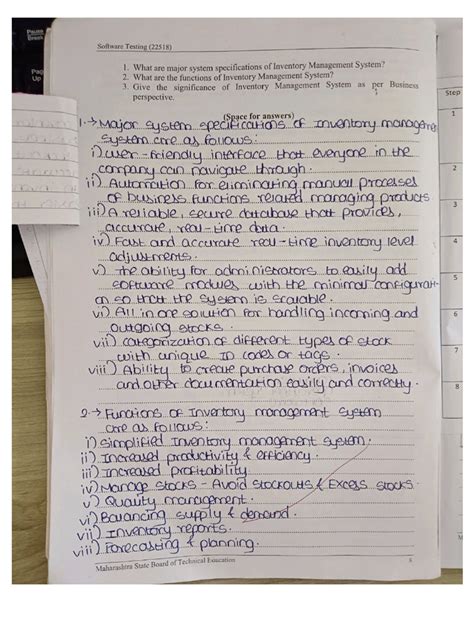 Pause
Break
Page
Up
Software Testing (22518)
1. What are major system specifications of Inventory Management System?
2. What are the functions of Inventory Management System?
3. Give the significance of Inventory Management System as per Business
perspective.
(Space for answers)
1.→ Major system specifications of Inventory managemen
System are as follows:
i) user-friendly interface that everyone in the
company can navigate through.
ii) Automation for eliminating manual processes
of business functions related managing products
iii) A reliable, secure database that provides,
accurate, real-time data.
iv) Fast and accurate real-time inventory level
adjustments.
v) the ability for administrators to easily add
software modules with the minimal configurati-
on so that the system is scalable.
vi) All in one solution for handling incoming and
outgoing stocks.
vii) categorization of different types of stock
with unique ID codes or tags.
viii) Ability to create purchase orders, invoices
and other documentation easily and correctly.
2.→ Functions of Inventory management system
are as follows:
i) Simplified Inventory management system.
ii) Increased productivity & efficiency.
iii) Increased profitability.
iv) Manage stocks - Avoid stockouts & Excess stocks.
v) Quality management.
vi) Balancing supply & demand.
vii) Inventory reports.
viii) Forecasting & planning.
Maharashtra State Board of Technical Education 8
Step
1
2
3
4
5
6
7
8